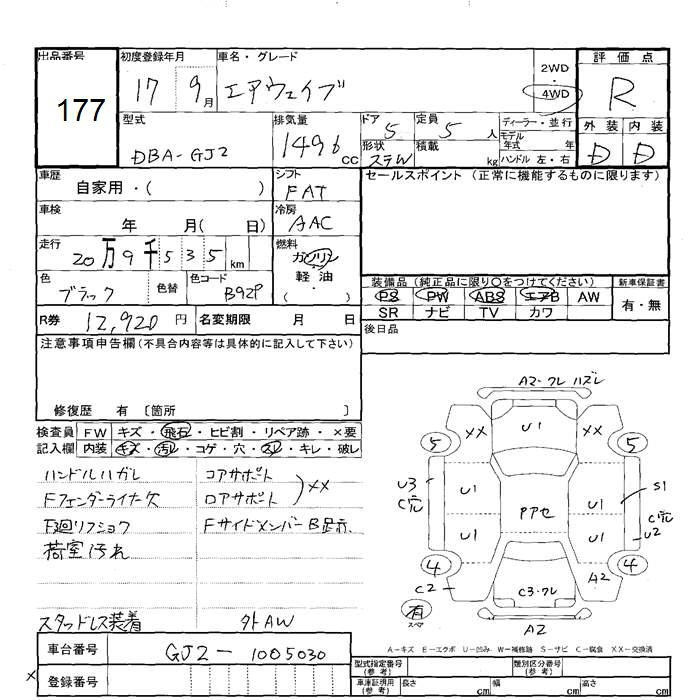 出品番号 177
初度登録年月 17 9月
車名・グレード エアウェイブ
2WD・4WD
評価点 R
外装 D 内装 D
型式 DBA-GJ2
排気量 1496 CC
ドア 5 定員 5 人
形状 ステW 積載 kg
ディーラー・並行
モデル年式 年
ハンドル 左・右
車歴 自家用・( )
シフト FAT
セールスポイント (正常に機能するものに限ります)
車検 年 月( 日)
冷房 AAC
走行 20万9千535 km
燃料 ガソリン・軽油・( )
色 ブラック 色替 色コード B92P
装備品 (純正品に限り○をつけてください) 新車保証書
PS PW ABS エアB AW 有・無
SR ナビ TV カワ
R券 12,920 円 名変期限 月 日
後日品
注意事項申告欄(不具合内容等は具体的に記入して下さい)
修復歴 有 〔箇所 〕
検査員 FW キズ・飛石・ヒビ割・リペア跡・×要
記入欄 内装 キズ・汚レ・コゲ・穴・スレ・キレ・破レ
ハンドルハガレ コアサポート
Fフェンダーライナー欠 ロアサポート ××
F廻リフショク FサイドメンバーB
荷室汚れ
スタッドレス装着 外AW
A2・クレ ハズレ
×× U1 ××
5 5
U3 C穴 U1 U1 S1
アアセ
U1 U1 C穴 U2
4 4
C2 C3・クレ A2
有 スペア
A2
A-キズ E-エクボ U-凹み W-補修跡 S-サビ C-腐食 XX-交換済
車台番号 GJ2-1005030
型式指定番号(参考) 類別区分番号(参考)
× 登録番号
車庫証明用(参考) 長さ cm 幅 cm 高さ cm